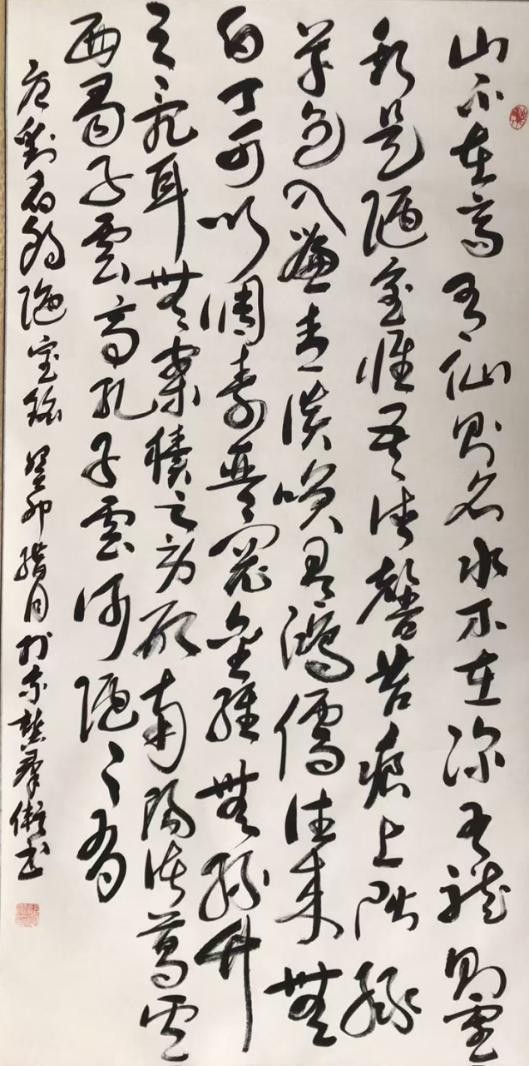 山不在高有仙則名水不在深有龍則靈
斯是陋室惟吾德馨苔痕上階綠
草色入簾青談笑有鴻儒往來無
白丁可以調素琴閱金經無絲竹
之亂耳無案牘之勞形南陽諸葛廬
西蜀子雲亭孔子雲何陋之有
唐劉禹錫陋室銘癸卯臘月於京